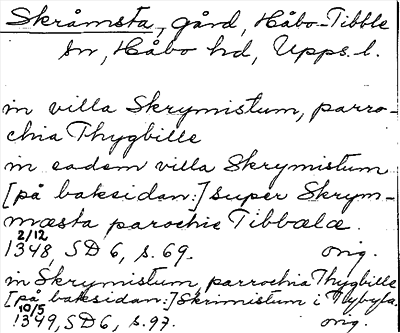 Skråmsta, gård, Håbo-Tibble
sn, Håbo hd, Upps. l.
in villa Skrymistum, parro-
chia Thygbille
in eadem villa Skrymistum
[på baksidan:] super Skrym-
mæsta parochie Tibbælæ.
2/12
1348, SD 6, s. 69. orig.
in Skrymistum, parrochia Thygbille
[på baksidan:] Skrimistum i
10/5
1349, SD 6, s. 97. orig.